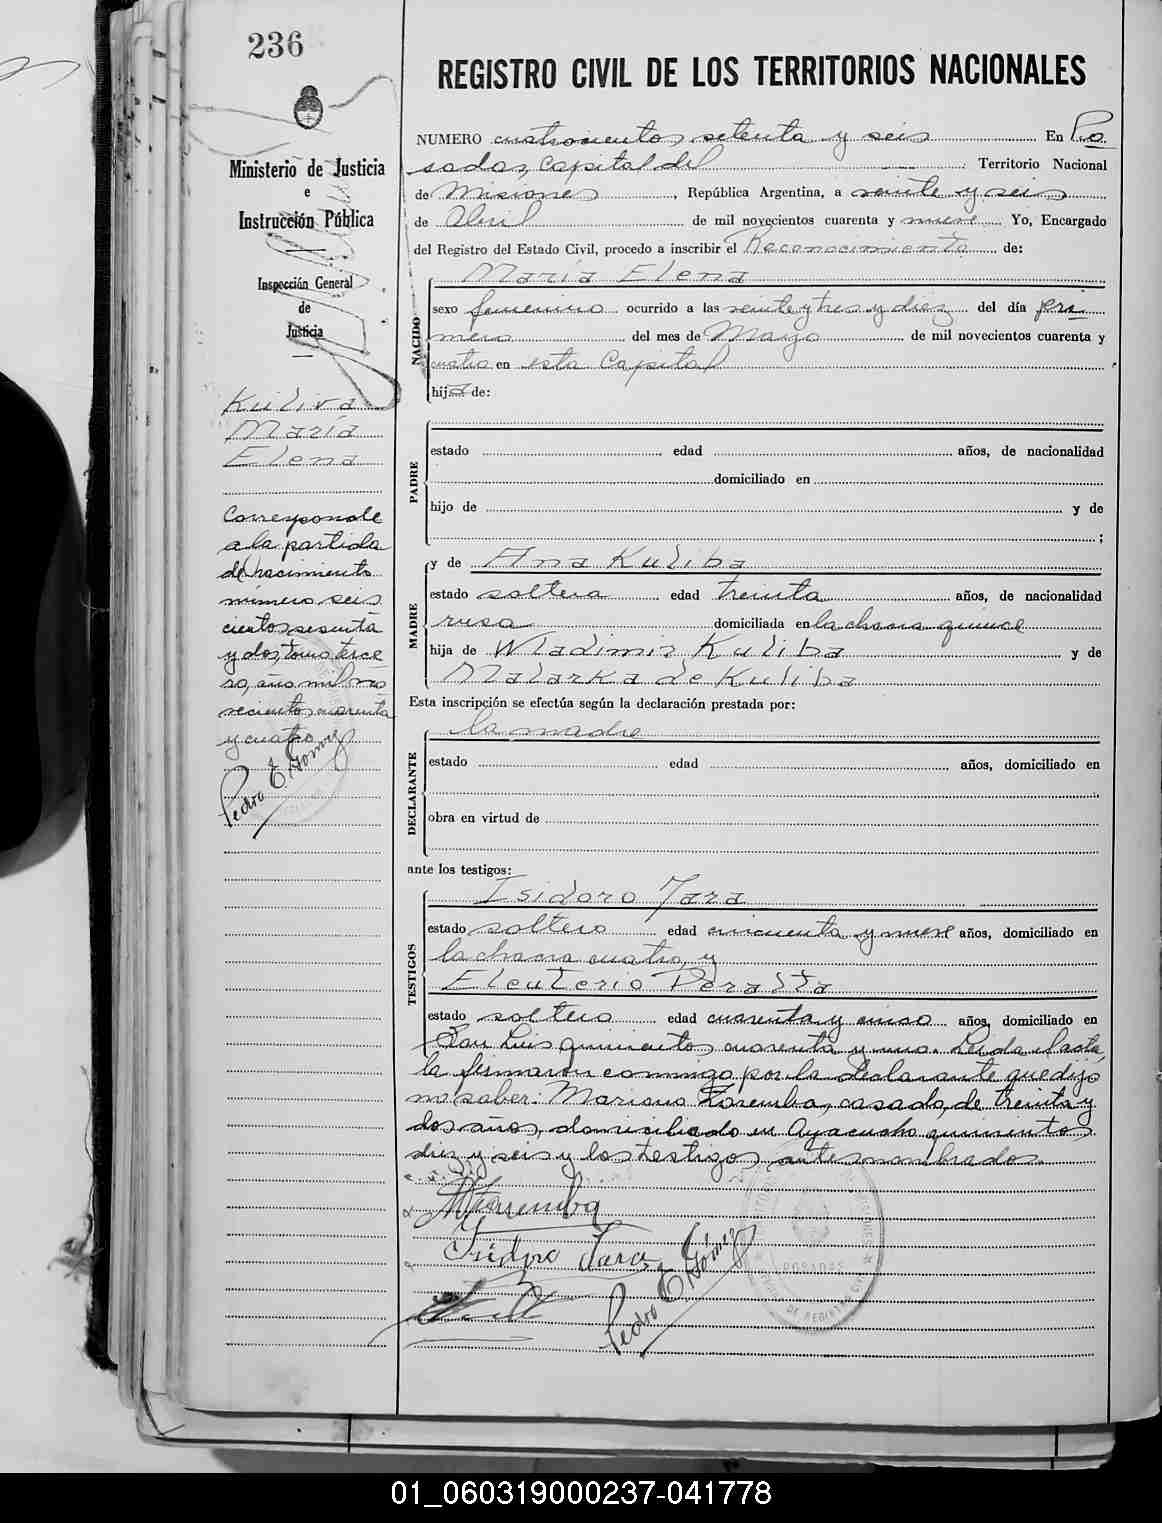 236
REGISTRO CIVIL DE LOS TERRITORIOS NACIONALES
Ministerio de Justicia
e
Instrucción Pública
Inspección General
de
Justicia
Kuliva
María
Elena
Corresponde
a la partida
de nacimiento
número seis
cientos sesenta
y dos, tomo terce
ro, año mil no
vecientos cuarenta
y cuatro
Pedro E. Gómez
NUMERO cuatrocientos setenta y seis En Po
sadas, Capital del Territorio Nacional
de Misiones, República Argentina, a veinte y seis
de Abril de mil novecientos cuarenta y nueve Yo, Encargado
del Registro del Estado Civil, procedo a inscribir el Reconocimiento de:
María Elena
NACIDO
sexo femenino ocurrido a las veinte y tres y diez del día pri
mero del mes de Mayo de mil novecientos cuarenta y
cuatro en esta Capital
hija de:
PADRE
estado edad años, de nacionalidad
domiciliado en
hijo de y de
;
MADRE
y de Ana Kuliba
estado soltera edad treinta años, de nacionalidad
rusa domiciliada en la chacra quince
hija de Wladimir Kuliba y de
Malarka de Kuliba
Esta inscripción se efectúa según la declaración prestada por:
la madre
DECLARANTE
estado edad años, domiciliado en
obra en virtud de
ante los testigos:
TESTIGOS
Isidoro Jara
estado soltero edad cincuenta y nueve años, domiciliado en
la chacra cuatro, y
Eleuterio Peralta
estado soltero edad cuarenta y cinco años, domiciliado en
San Luis quinientos cuarenta y uno. Leída el acta,
la firmaron conmigo por la declarante que dijo
no saber: Mariano Zaremba, casado, de treinta y
dos años, domiciliado en Ayacucho quinientos
diez y seis y los testigos antes nombrados.
MZaremba
Isidoro Jara
Pedro E. Gómez
01_060319000237-041778